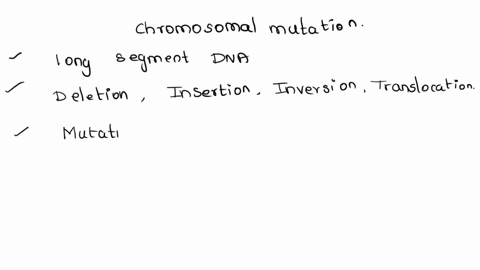 Chromosomal mutation.
✓ long segment DNA
✓ Deletion, Insertion, Inversion, Translocation.
✓ Mutati